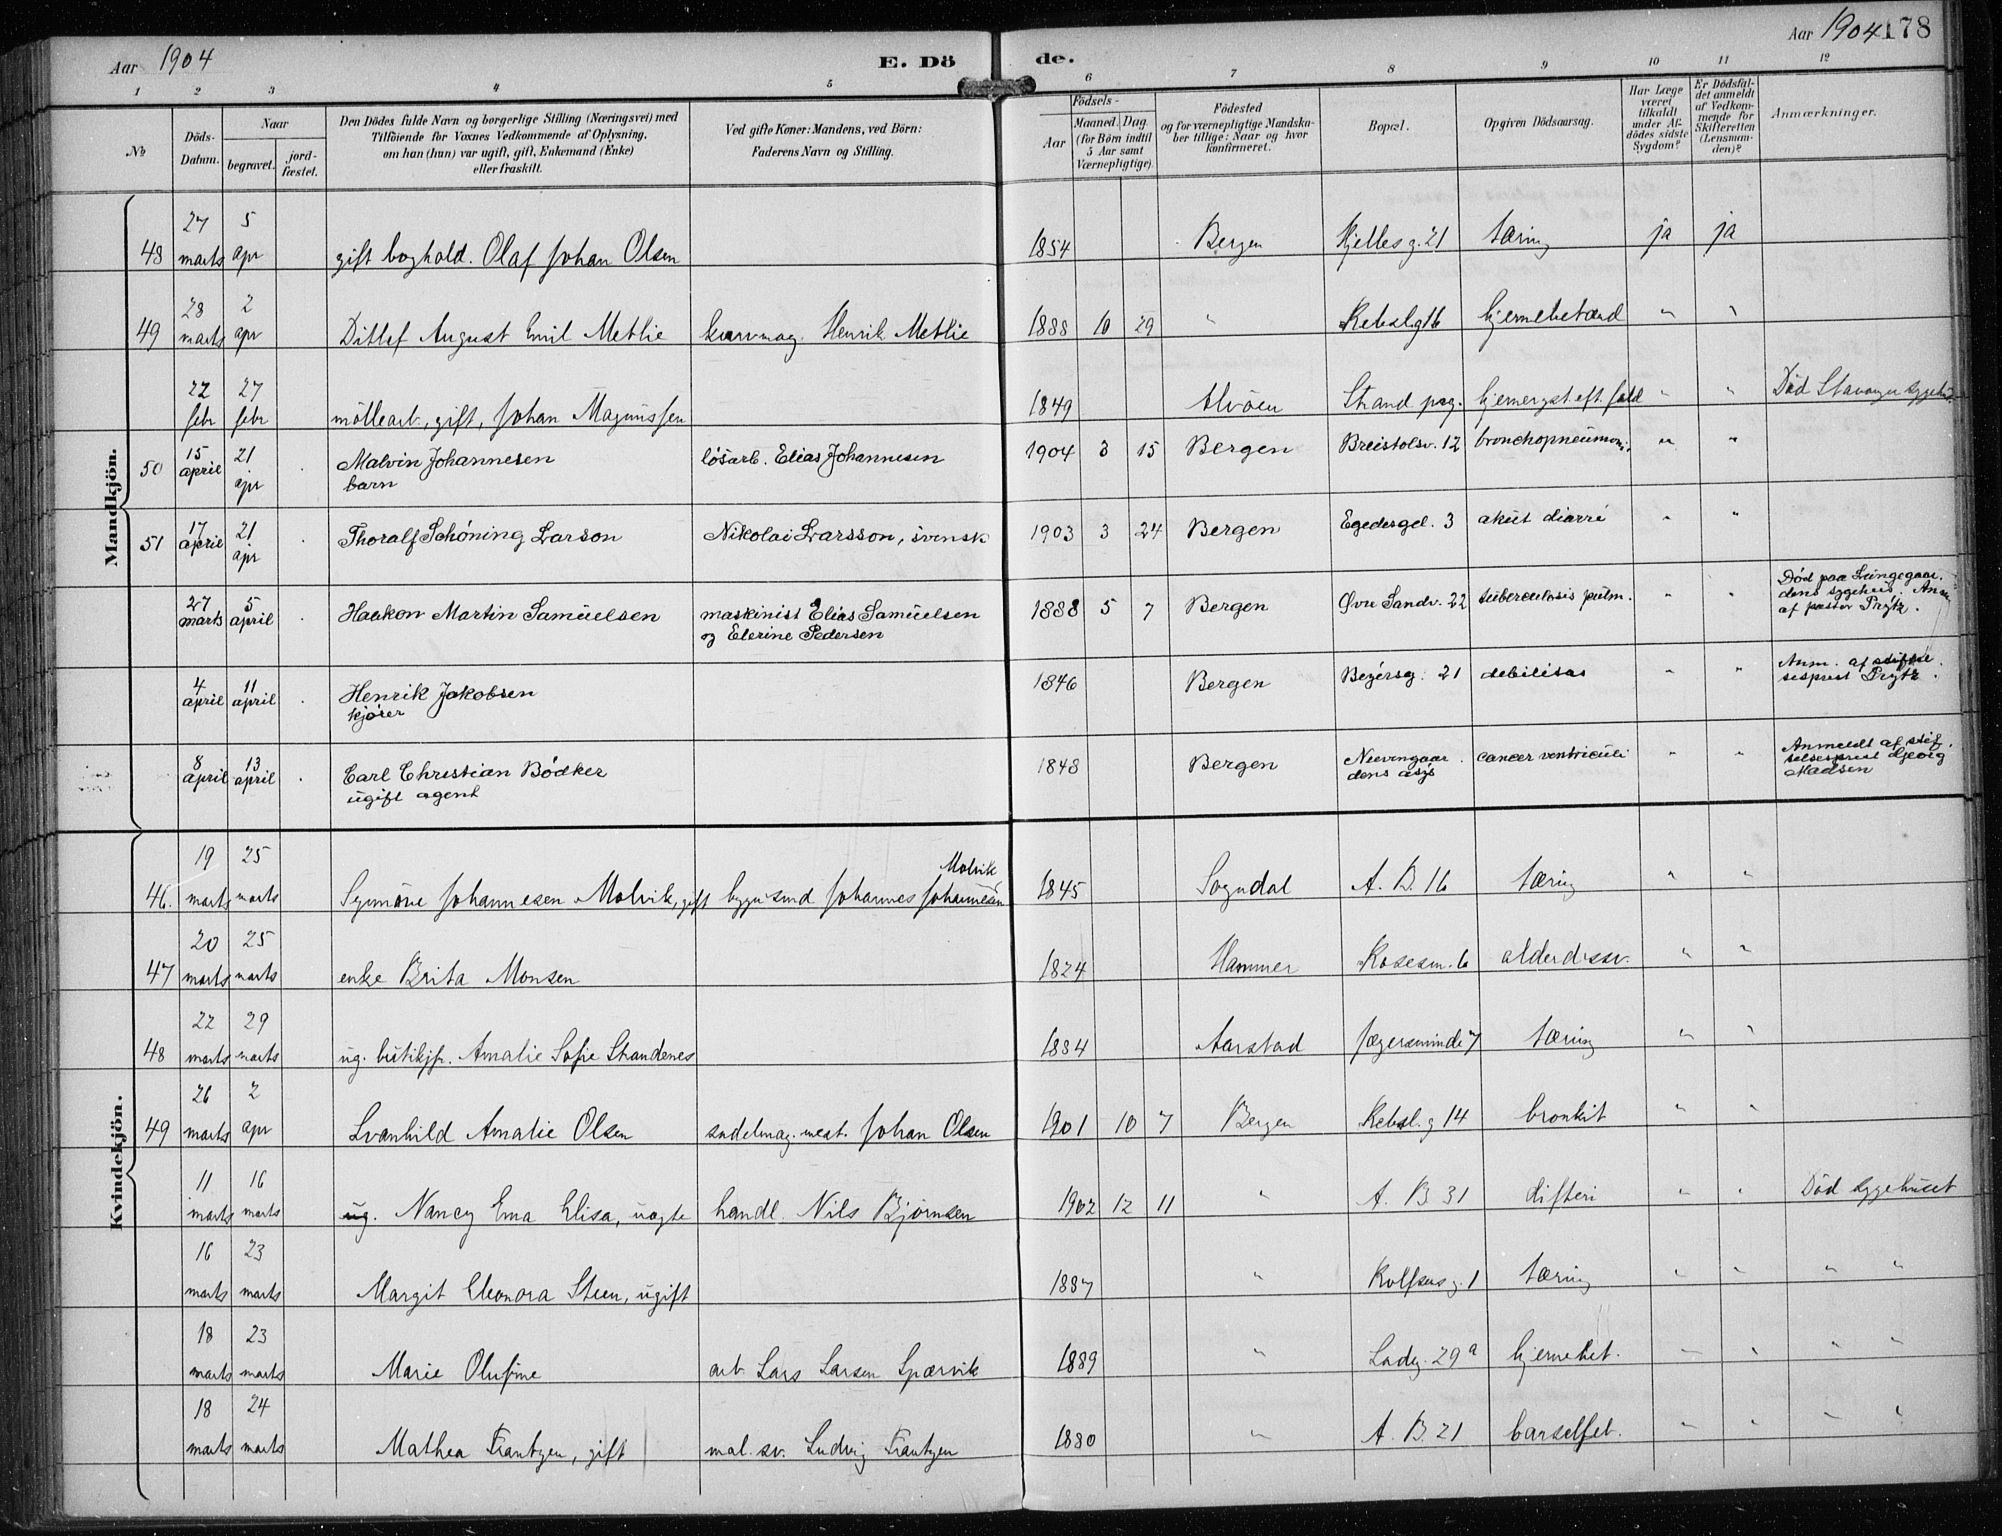 Aar 1904
E. Döde.
Aar 1904 178
1 2 3 4 5 6 7 8 9 10 11 12
No
Döds-Datum.
Naar
begravet.
jord-fæstet.
Den Dödes fulde Navn og borgerlige Stilling (Næringsvei) med
Tilföiende for Voxnes Vedkommende af Oplysning,
om han (hun) var ugift, gift, Enkemand (Enke)
eller fraskilt.
Ved gifte Koner: Mandens, ved Börn:
Faderens Navn og Stilling.
Födsels-
Aar
Maaned. Dag.
(for Börn indtil
5 Aar samt
Værnepligtige)
Födested
og for værnepligtige Mandska-
ber tillige: Naar og hvor
konfirmeret.
Bopæl.
Opgiven Dödsaarsag.
Har Læge
været
tilkaldt
under Af-
dödes sidste
Sygdom?
Er Dödsfal-
det anmeldt
af Vedkom-
mende for
Skifteretten
(Lensman-
den)?
Anmærkninger.
Mandkjön.
48 27 marts 5 apr gift boghold. Olaf Johan Olsen 1854 Bergen Kjellesg. 21 tæring ja ja
49 28 marts 2 apr Ditlef August Emil Metlie kurvmag. Henrik Metlie 1888 10 29 " Rebslg 16 hjernebetænd " "
22 febr 27 febr möllearb., gift, Johan Magnussen 1849 Alvöen Strand psg. hjerneryst. eft. fald " " Död Stavanger sygehus.
50 15 april 21 apr Malvin Johannesen
barn
lösarb. Elias Johannesen 1904 3 15 Bergen Breistolsv. 12 bronchopneumoni. " "
51 17 april 21 apr Thoralf Schöning Larson Nikolai Larsson, svensk 1903 3 24 Bergen Egedesgd. 3 akut diarré " "
27 marts 5 april Haakon Martin Samuelsen maskinist Elias Samuelsen
og Elerine Pedersen
1888 5 7 Bergen Øvre Sandv. 22 tuberculosis pulm. " " Död paa Lungegaar-
dens sygehus. Anm.
af pastor Prytz.
4 april 11 april Henrik Jakobsen
kjører
1846 Bergen Beyersg. 21 debilitas " " Anm. af stiftel-
sesprest Prytz.
8 april 13 april Carl Christian Bödker
ugift agent
1848 Bergen Neevengaar-
dens asyl
cancer ventriculi " " Anmeldt af stif-
telsesprest Georg
Madsen
Kvindekjön.
46. 19 marts 25 marts Synnöve Johannesen Molvik, gift bygn.smd Johannes Johannesen Molvik 1845 Sogndal A. B. 16 tæring " "
47 20 marts 25 marts enke Brita Monsen 1824 Hammer Rosesm. 6 alderd.ssv. " "
48 22 marts 29 marts ug. butikjfr. Amalie Sofie Strandenes 1884 Aarstad Jægersminde 7 tæring " "
49 26 marts 2 apr Svanhild Amalie Olsen sadelmag. mest. Johan Olsen 1901 10 7 Bergen Rebsl. g 14 bronkit " "
11 marts 16 marts ug. Nancy Ema Elisa, uægte handl. Nils Bjørnsen 1902 12 11 " A. B 31 difteri " " Död sygehuset
16 marts 23 marts Margit Eleonora Steen, ugift 1887 " Rolfsens g. 1 tæring " " " "
18 marts 23 marts Marie Olufine arb. Lars Larsen Spærvik 1889 " Ladeg. 29 a hjernebet. " " " "
18 marts 24 marts Mathea Frantzen, gift mal. sv. Ludvig Frantzen 1880 " A. B. 21 barselfeb. " " " "